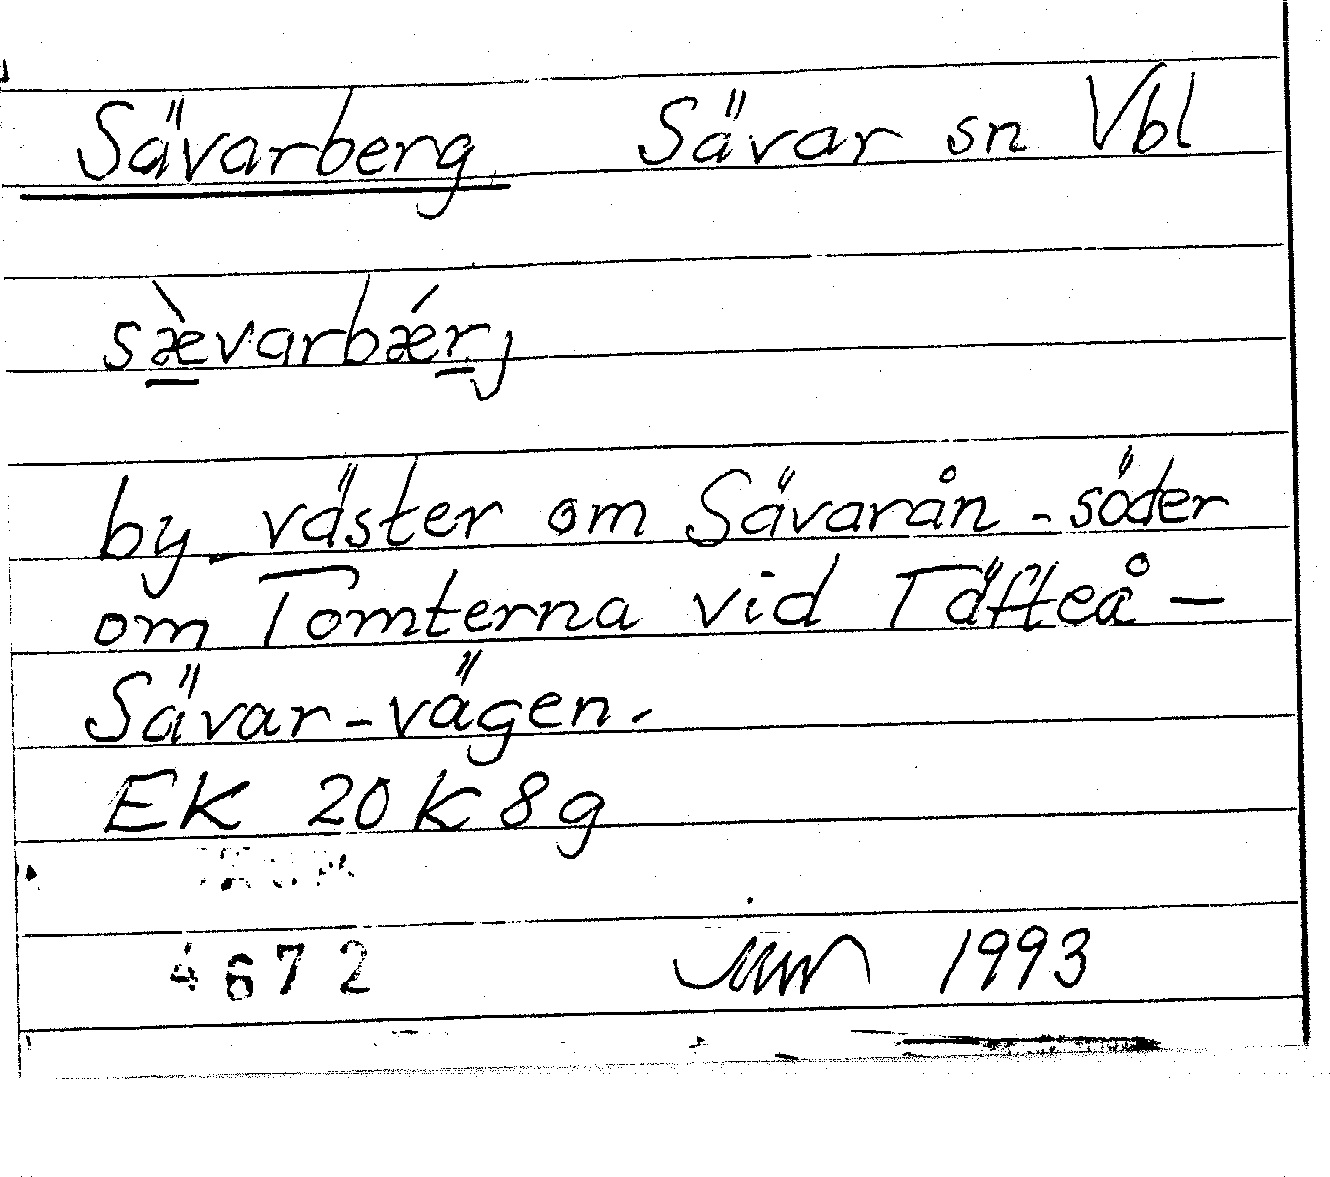 Sävarberg Sävar sn Vbl
sæ̱̀varbǽṟj
by väster om Sävarån - söder
om Tomterna vid Täfteå -
Sävar-vägen.
EK 20 K 8 g
4672 1993